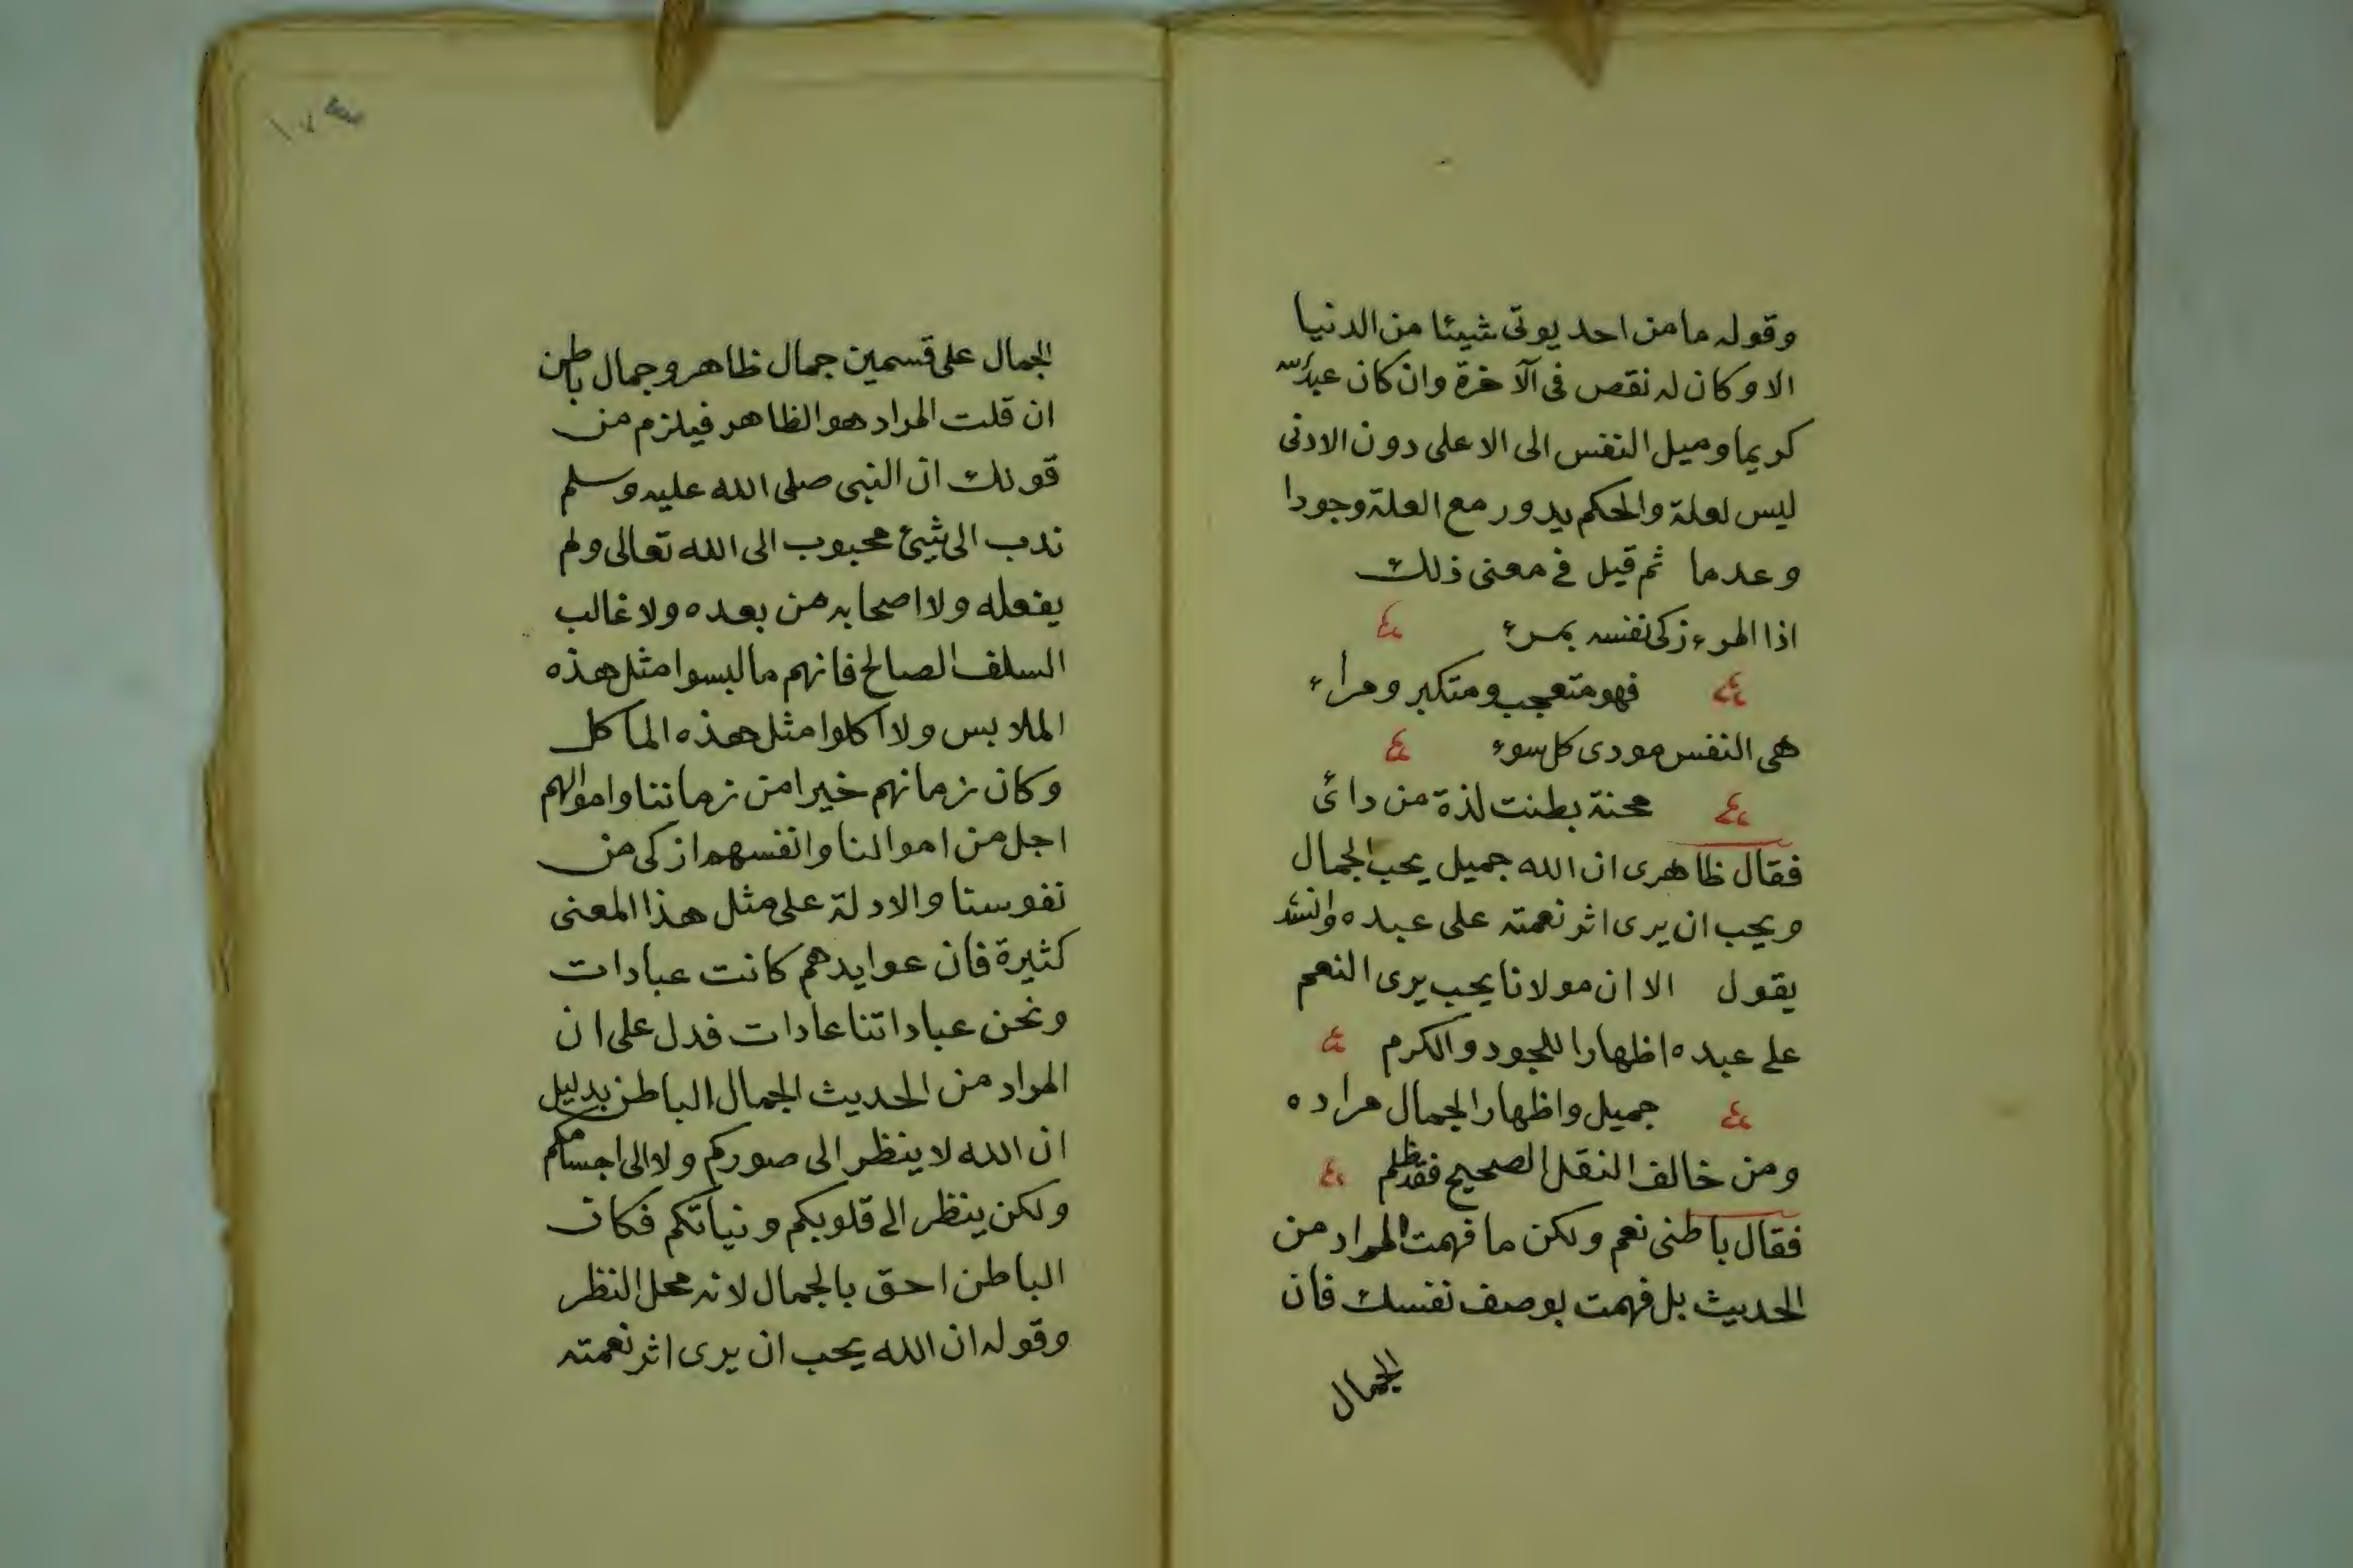 وقوله ما من احد يوتى شيئا من الدنيا
الا وكان له نقص فى الآخرة وان كان عند الله
كريما وميل النفس الى الاعلى دون الادنى
ليس لعلة والحكم يدور مع العلة وجودا
وعدما ثم قيل فى معنى ذلك
اذا المرء زكى نفسه بمرء
فهو متعجب ومتكبر ومراء
هى النفس مودى كل سوء
محنة بطنت لذة من دائ
فقال ظاهرى ان الله جميل يحب الجمال
ويحب ان يرى اثر نعمته على عبده وانشد
يقول الا ان مولانا يحب يرى النعم
على عبده اظهارا للجود والكرم
جميل واظهار الجمال مراده
ومن خالف النقل الصحيح فقد ظلم
فقال باطنى نعم ولكن ما فهمت المراد من
الحديث بل فهمت بوصف نفسك فان
الجمال
الجمال على قسمين جمال ظاهر وجمال باطن
ان قلت المراد هو الظاهر فيلزم من
قولك ان النبى صلى الله عليه وسلم
ندب الى شيئ محبوب الى الله تعالى ولم
يفعله ولا اصحابه من بعده ولا غالب
السلف الصالح فانهم ما لبسوا مثل هذه
الملابس ولا اكلوا مثل هذه المآكل
وكان زمانهم خيرا من زماننا واموالهم
اجل من اموالنا وانفسهم ازكى من
نفوسنا والادلة على مثل هذا المعنى
كثيرة فان عوايدهم كانت عبادات
ونحن عباداتنا عادات فدل على ان
المراد من الحديث الجمال الباطن بدليل
ان الله لا ينظر الى صوركم ولا الى اجسامكم
ولكن ينظر الى قلوبكم ونياتكم فكان
الباطن احق بالجمال لانه محل النظر
وقوله ان الله يحب ان يرى اثر نعمته